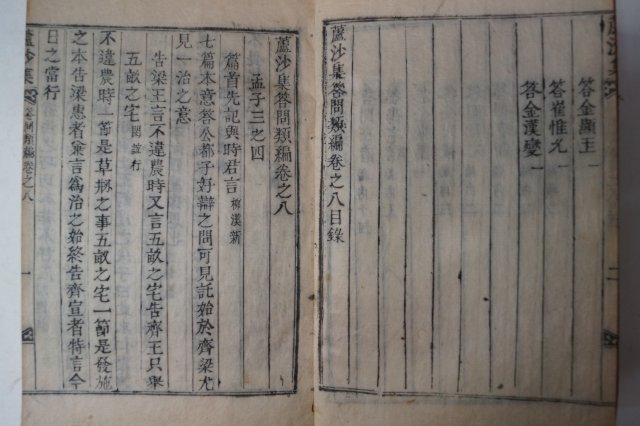 答金顯玉 一
答崔惟允 一
答金漢燮 一
蘆沙集答問類編卷之八目錄
蘆沙集答問類編卷之八
孟子三之四
篇首先記與時君言 柳漢新
七篇本意答公都子好辯之問可見託始於齊梁尤
見一治之意
告梁王言不違農時又言五畝之宅告齊王只舉
五畝之宅
不違農時一節是草刱之事五畝之宅一節是發施
之本告梁惠者兼言爲治之始終告齊宣者特言今
日之當行
卷之八
一